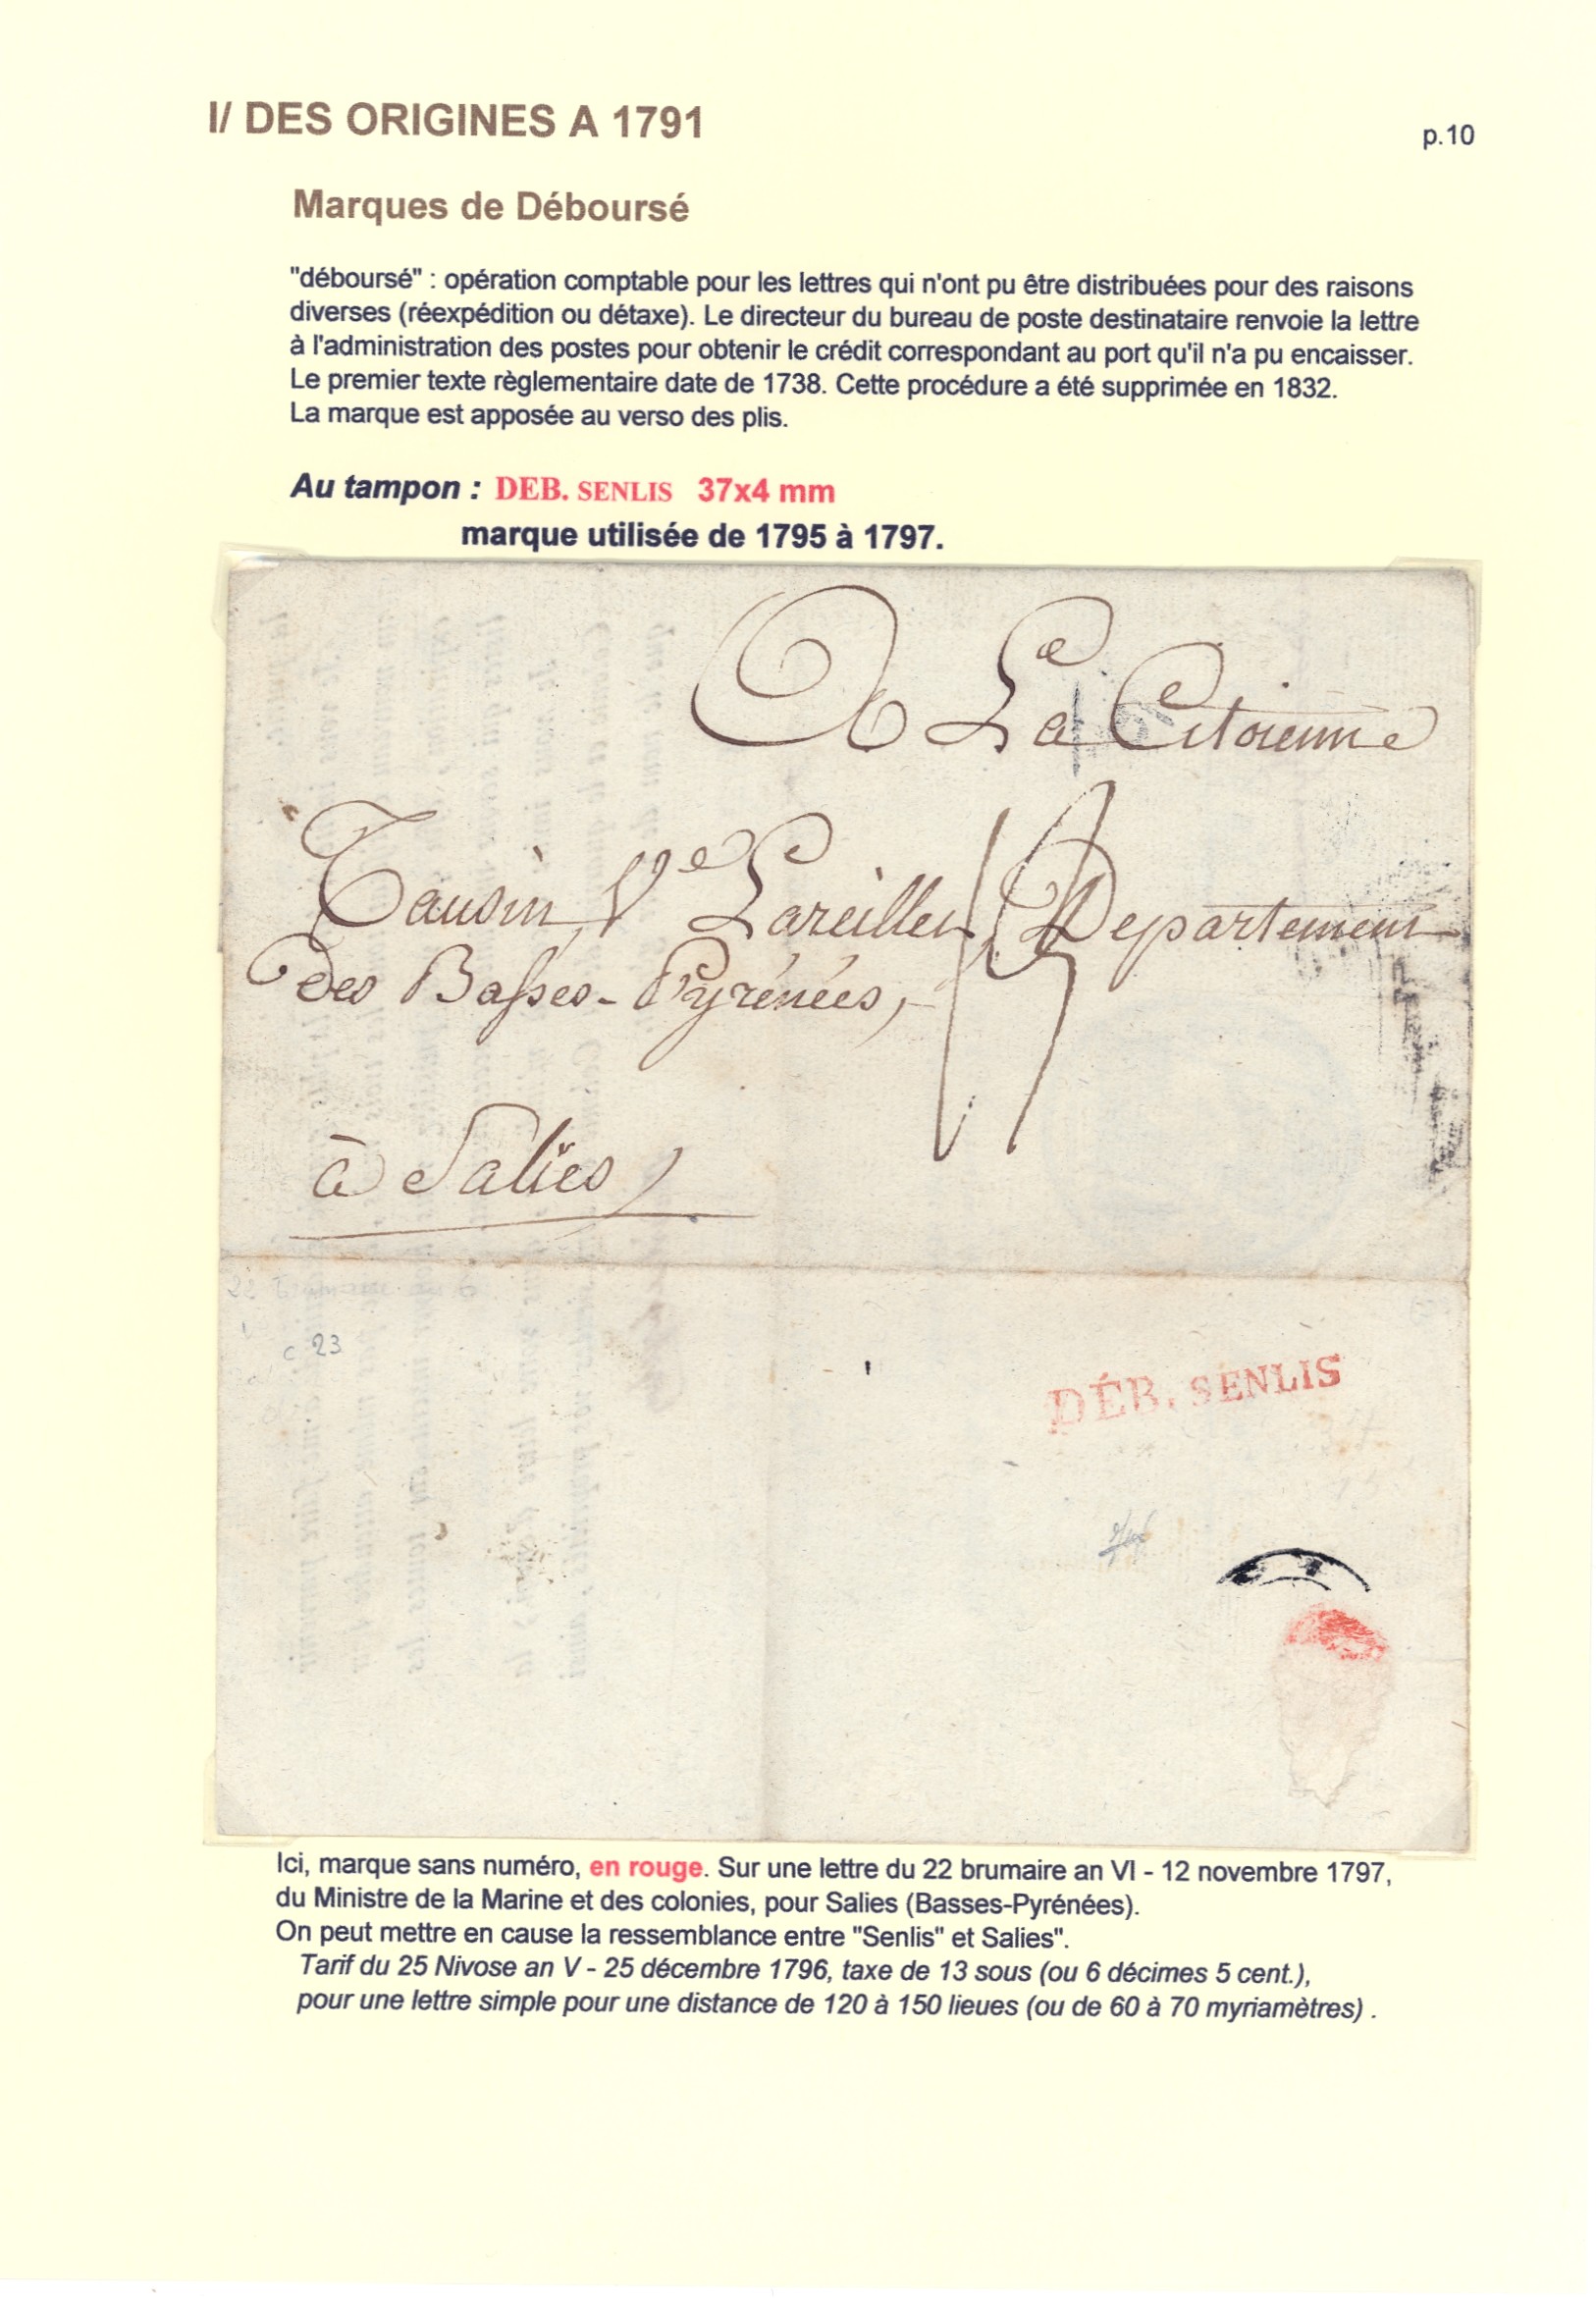 I/ DES ORIGINES A 1791
p.10
Marques de Déboursé
"déboursé" : opération comptable pour les lettres qui n'ont pu être distribuées pour des raisons
diverses (réexpédition ou détaxe). Le directeur du bureau de poste destinataire renvoie la lettre
à l'administration des postes pour obtenir le crédit correspondant au port qu'il n'a pu encaisser.
Le premier texte règlementaire date de 1738. Cette procédure a été supprimée en 1832.
La marque est apposée au verso des plis.
Au tampon : DEB. SENLIS 37x4 mm
marque utilisée de 1795 à 1797.
A La Citoienne
Tausin Ve Lareillet, Departement
des Basses-Pyrénées,
13
à Salies
c 23
DÉB. SENLIS
Ici, marque sans numéro, en rouge. Sur une lettre du 22 brumaire an VI - 12 novembre 1797,
du Ministre de la Marine et des colonies, pour Salies (Basses-Pyrénées).
On peut mettre en cause la ressemblance entre "Senlis" et Salies".
Tarif du 25 Nivose an V - 25 décembre 1796, taxe de 13 sous (ou 6 décimes 5 cent.),
pour une lettre simple pour une distance de 120 à 150 lieues (ou de 60 à 70 myriamètres) .